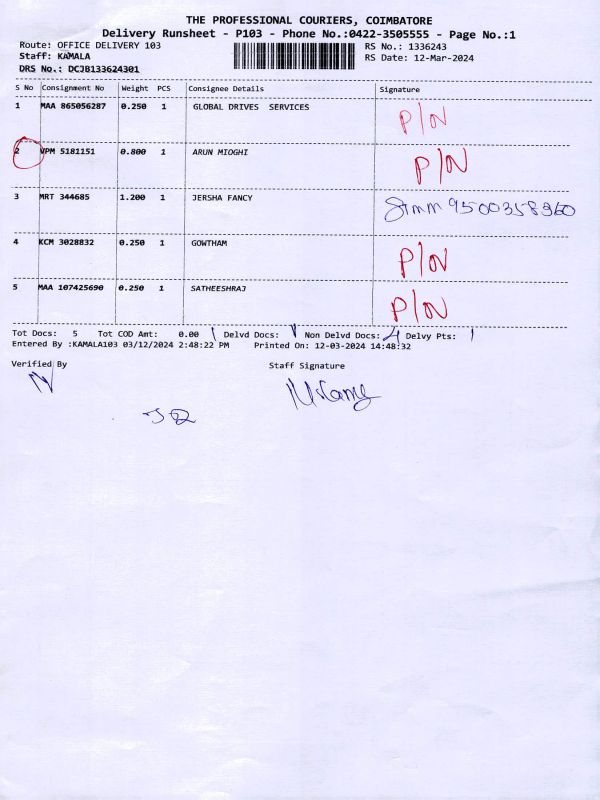 THE PROFESSIONAL COURIERS, COIMBATORE
Delivery Runsheet - P103 - Phone No.:0422-3505555 - Page No.:1
Route: OFFICE DELIVERY 103 RS No.: 1336243
Staff: KAMALA RS Date: 12-Mar-2024
DRS No.: DCJB133624301
S No Consignment No Weight PCS Consignee Details Signature
1 MAA 865056287 0.250 1 GLOBAL DRIVES SERVICES P/N
2 VPM 5181151 0.800 1 ARUN MIOGHI P/N
3 MRT 344685 1.200 1 JERSHA FANCY 9500358360
4 KCM 3028832 0.250 1 GOWTHAM P/N
5 MAA 107425690 0.250 1 SATHEESHRAJ P/N
Tot Docs: 5 Tot COD Amt: 0.00 Delvd Docs: 1 Non Delvd Docs: 4 Delvy Pts: 1
Entered By :KAMALA103 03/12/2024 2:48:22 PM Printed On: 12-03-2024 14:48:32
Verified By Staff Signature